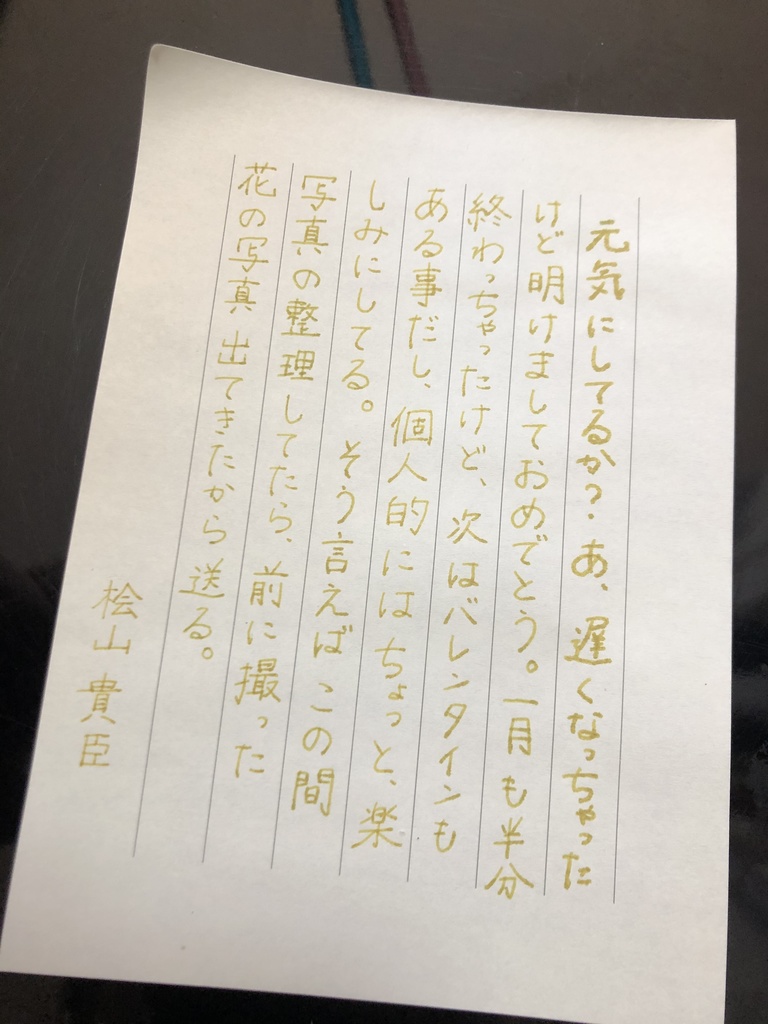 元気にしてるか？あ、遅くなっちゃった
けど明けましておめでとう。一月も半分
終わっちゃったけど、次はバレンタインも
ある事だし、個人的にはちょっと、楽
しみにしてる。そう言えばこの間
写真の整理してたら、前に撮った
花の写真出てきたから送る。
桧山貴臣